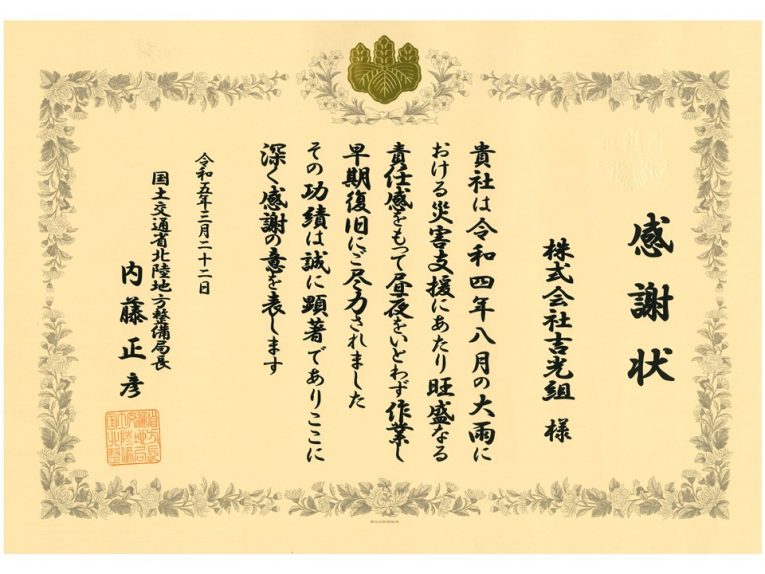 感謝状
株式会社吉光組 様
貴社は令和四年八月の大雨に
おける災害支援にあたり旺盛なる
責任感をもって昼夜をいとわず作業し
早期復旧にご尽力されました
その功績は誠に顕著でありここに
深く感謝の意を表します
令和五年三月二十二日
国土交通省北陸地方整備局長
内藤正彦